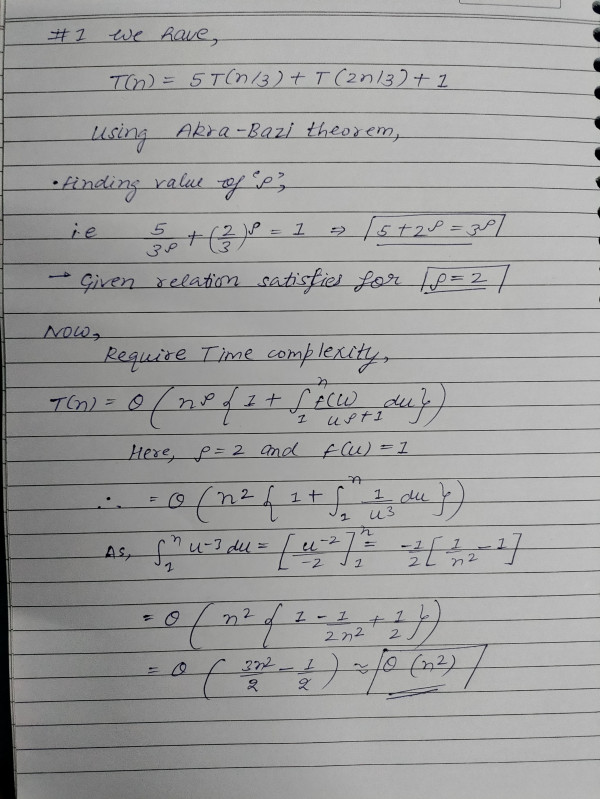 #1 We have,
T(n) = 5T(n/3) + T(2n/3) + 1
Using Akra-Bazi theorem,
• finding value of 'ρ',
i.e 5/3^ρ + (2/3)^ρ = 1 ⇒ 5 + 2^ρ = 3^ρ
→ Given relation satisfies for ρ = 2
Now,
Require Time complexity,
T(n) = Θ ( n^ρ { 1 + ∫_1^n f(u)/u^ρ+1 du } )
Here, ρ = 2 and f(u) = 1
∴ = Θ ( n^2 { 1 + ∫_1^n 1/u^3 du } )
As, ∫_1^n u^-3 du = [ u^-2/-2 ]_1^n = -1/2 [ 1/n^2 - 1 ]
= Θ ( n^2 { 1 - 1/2n^2 + 1/2 } )
= Θ ( 3n^2/2 - 1/2 ) ≈ Θ (n^2)